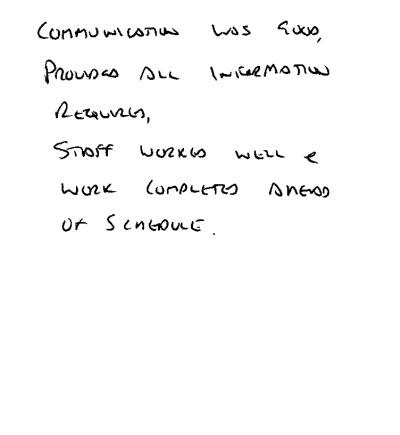 COMMUNICATION WAS GOOD,
PROVIDED ALL INFORMATION
REQUIRED,
STAFF WORKED WELL &
WORK COMPLETED AHEAD
OF SCHEDULE.